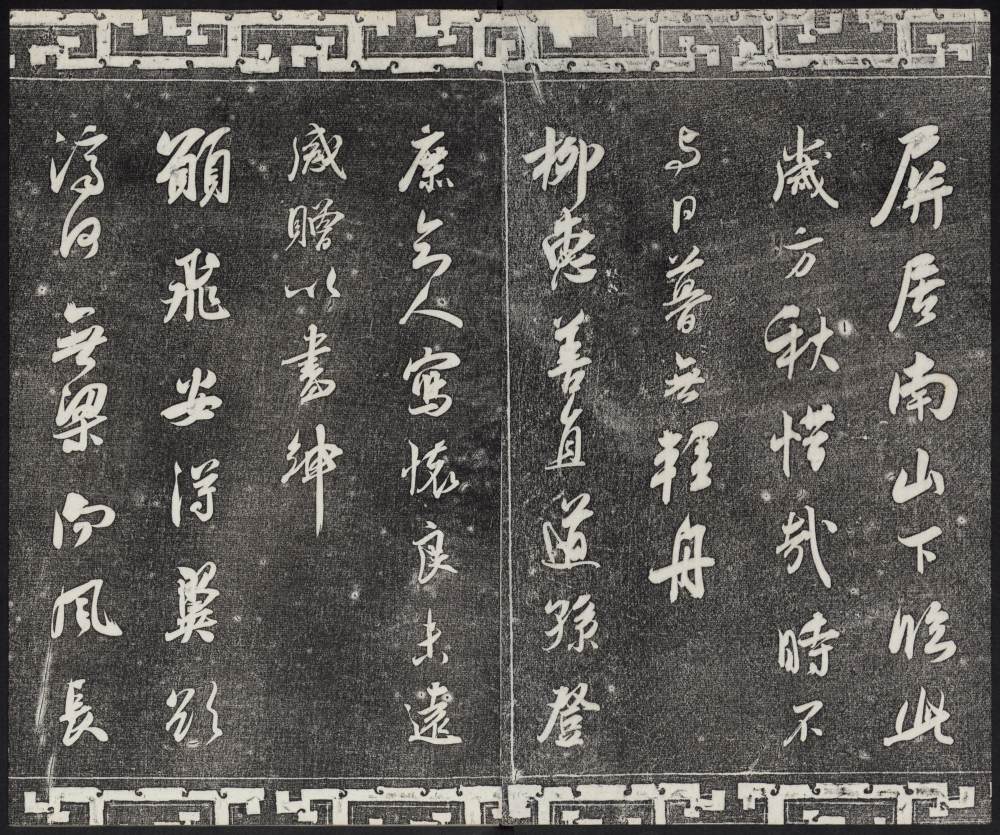 屏居南山下臨此
歲方秋惜哉時不
與日暮無輕舟
柳惠善直道孫登
庶知人寫懷良未遠
感贈以書紳
願飛安得翼欲
濟河無梁向風長